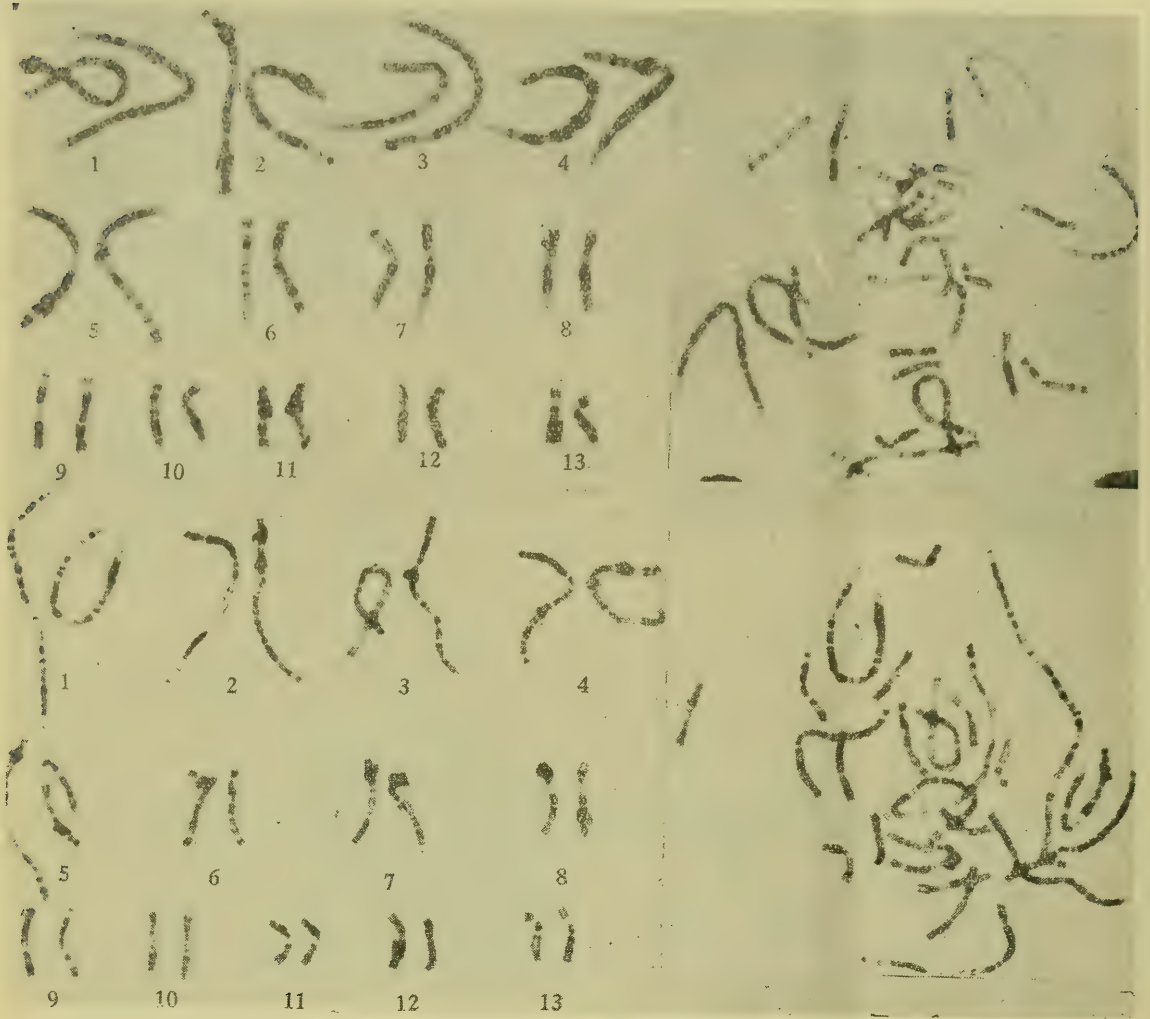 1 2 3 4
5 6 7 8
9 10 11 12 13
1 2 3 4
5 6 7 8
9 10 11 12 13